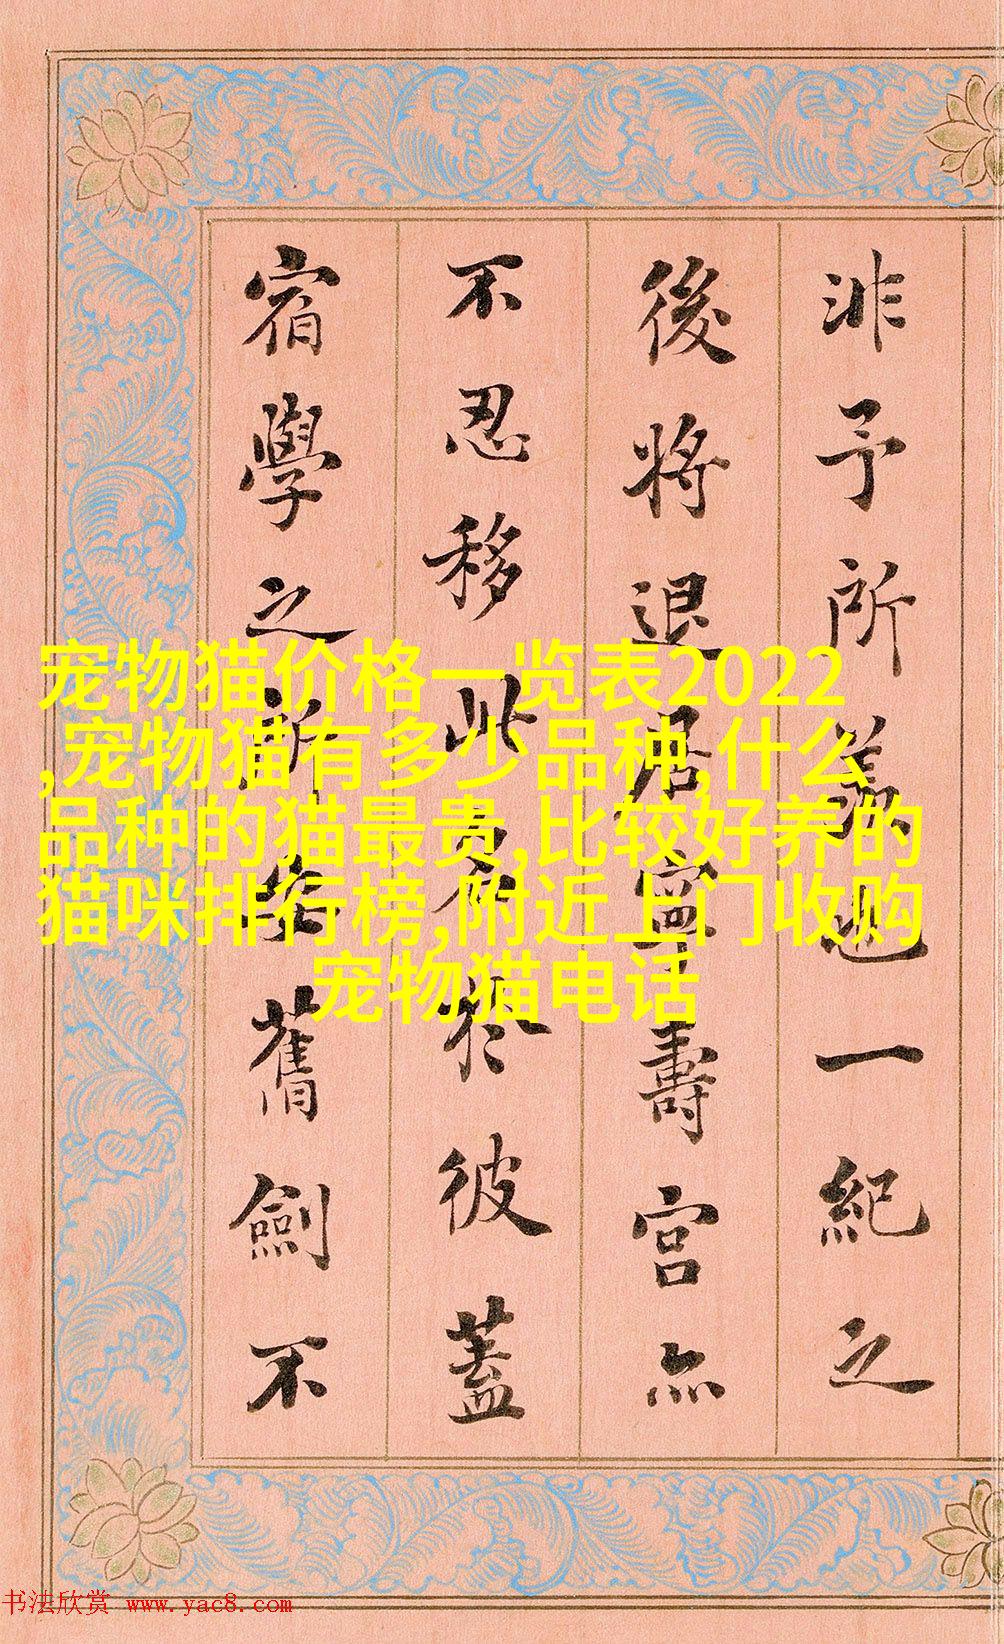 非予所羨也一紀之
後將退居寧壽宮亦
不忍移此於彼蓋
宿學之所舊劍不
宠物猫价格一览表2022
,宠物猫有多少品种,什么
品种的猫最贵,比较好养的
猫咪排行榜,附近上门收购
宠物猫电话
书法欣赏 www.yac8.com